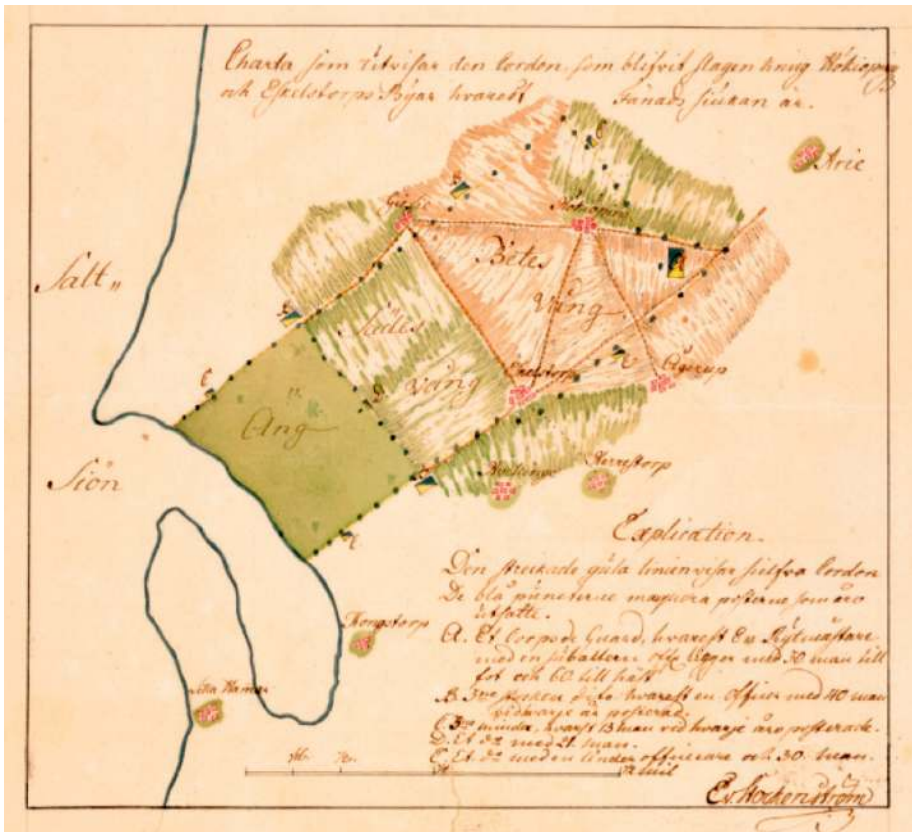 Charta som utvisar den Cordon, som blifvit slagen kring Hökioping
och Eskelstorps Byar hvarest Fänads siukan är.
Arie
Salt„
Siön
Betes
Vång
Sädes
vång
Äng
Explication.
Den streckade gula linien visar sielfva Cordon
De blå puncterne marquera posterne som äro
utsatte.
A. Et Corps de Guard, hvarest En Rytmästare
med en subaltern ligger med 30 man till
fot och 60 till häst
B. 3ne stycken dito hvarest en Officer med 40 man
vid hvarje är posterad.
C. 3ne mindre, hvarest 13 man vid hvarje äro posterade.
D. Et do med 21. man.
E. Et do med en Under officerare och 30. man.
C. v. Stockenström